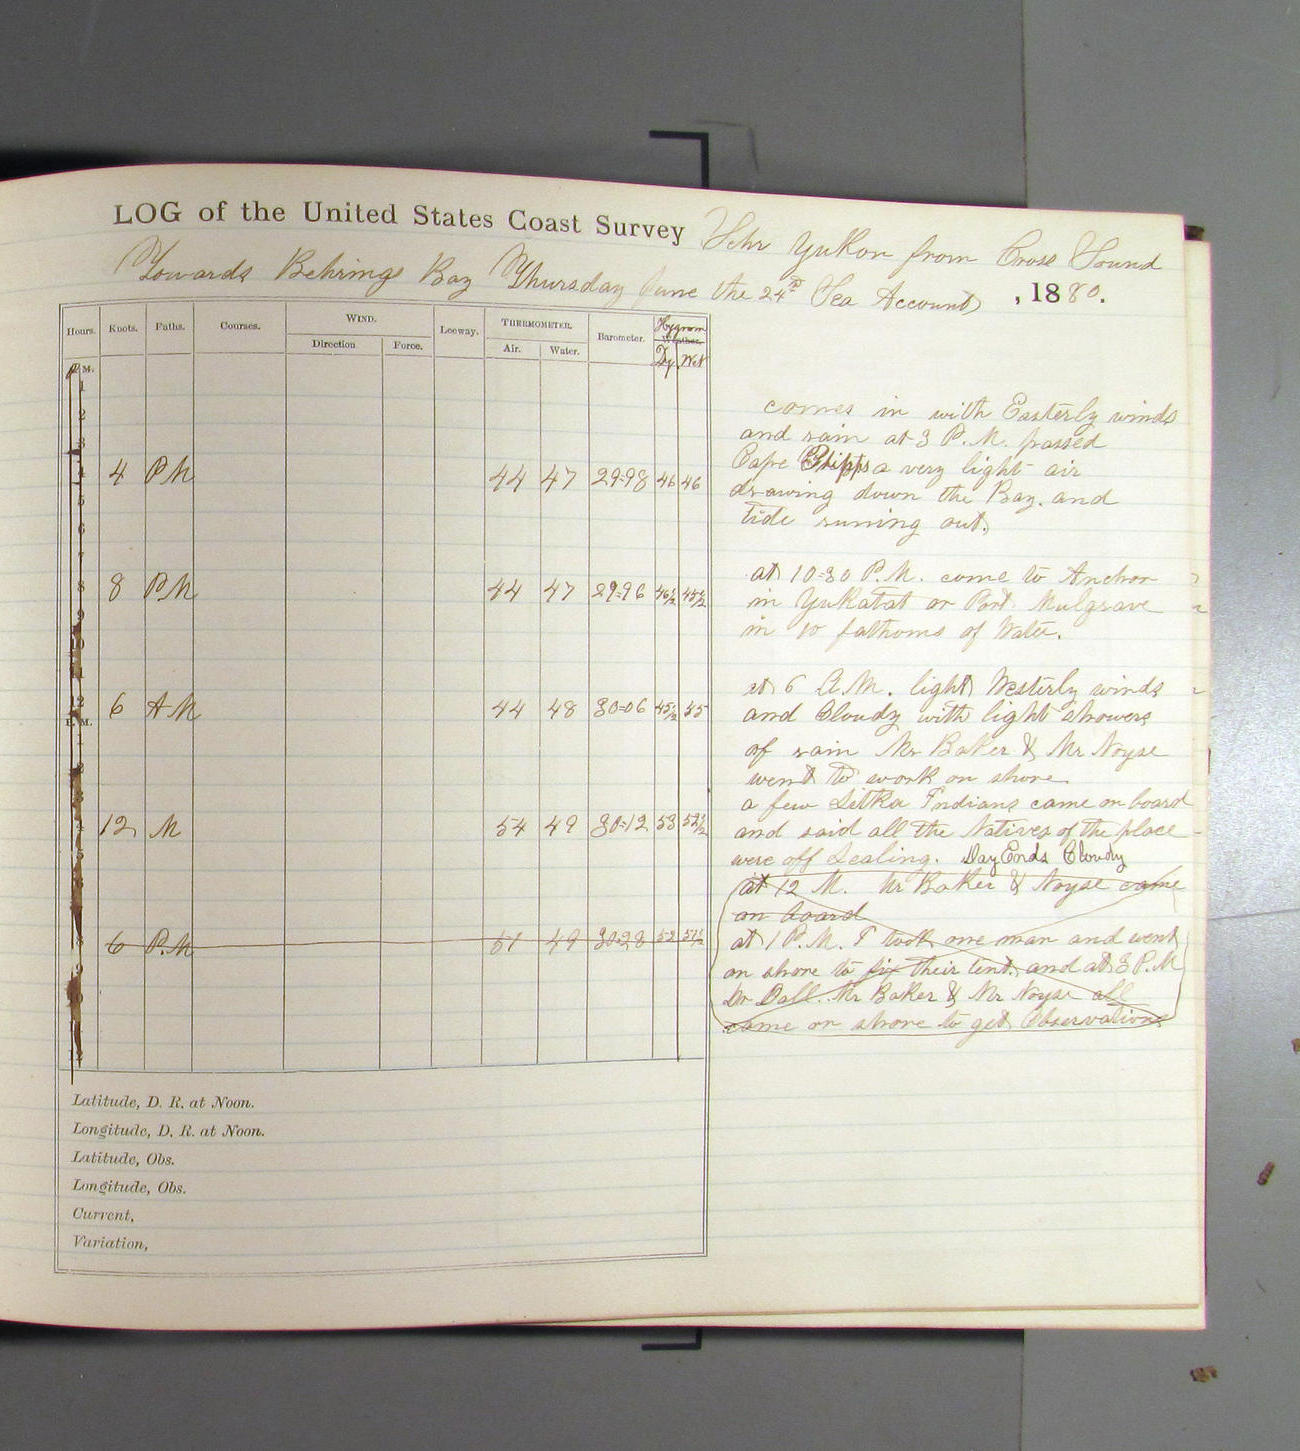 LOG of the United States Coast Survey Schr Yukon from Cross Sound
Towards Behrings Bay Thursday June the 24th Sea Account , 1880.
Hours. Knots. Faths. Courses. WIND. Leeway. THERMOMETER. Barometer. Hygrom Weather.
Direction Force. Air. Water. Dry Wet
P.M.
1
2
3
4 4 PM 44 47 29=98 46 46
5
6
7
8 8 PM 44 47 29=96 46½ 45½
9
10
11
12 6 AM 44 48 30=06 45½ 45
M.
1
2
3
4 12 M 54 49 30=12 53 52½
5
8 6 P.M 51 49 30=28 52 51½
9
10
12
comes in with Easterly winds
and rain at 3 P.M. passed
Cape Phipps a very light air
drawing down the Bay. and
tide runing out.
at 10=30 P.M. come to Anchor
in Yukatat or Port Mulgrave
in 10 fathoms of Water.
at 6 A.M. light Westerly winds
and Cloudy with light showers
of rain Mr Baker & Mr Noyse
went to work on shore
a few Sitka Indians came on board
and said all the Natives of the place
were off Sealing. Day Ends Cloudy
at 12 M. Mr Baker & Noyse came
on board
at 1 P.M. I took one man and went
on shore to fix their tent. and at 3 P.M
Mr Dall. Mr Baker & Mr Noyse all
came on shore to get Observations
Latitude, D. R. at Noon.
Longitude, D. R. at Noon.
Latitude, Obs.
Longitude, Obs.
Current,
Variation,